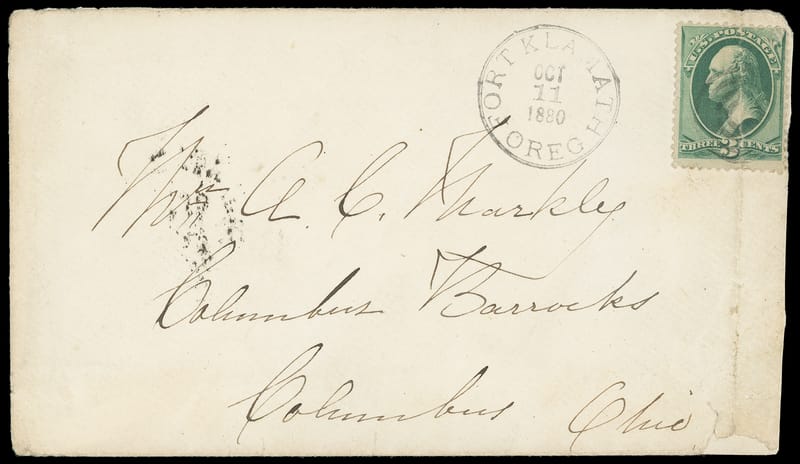 FORT KLAMATH
OCT
11
1880
OREG
U.S. POSTAGE
THREE 3 CENTS
Mr. A. C. Markley
Columbus Barrocks
Columbus Ohio